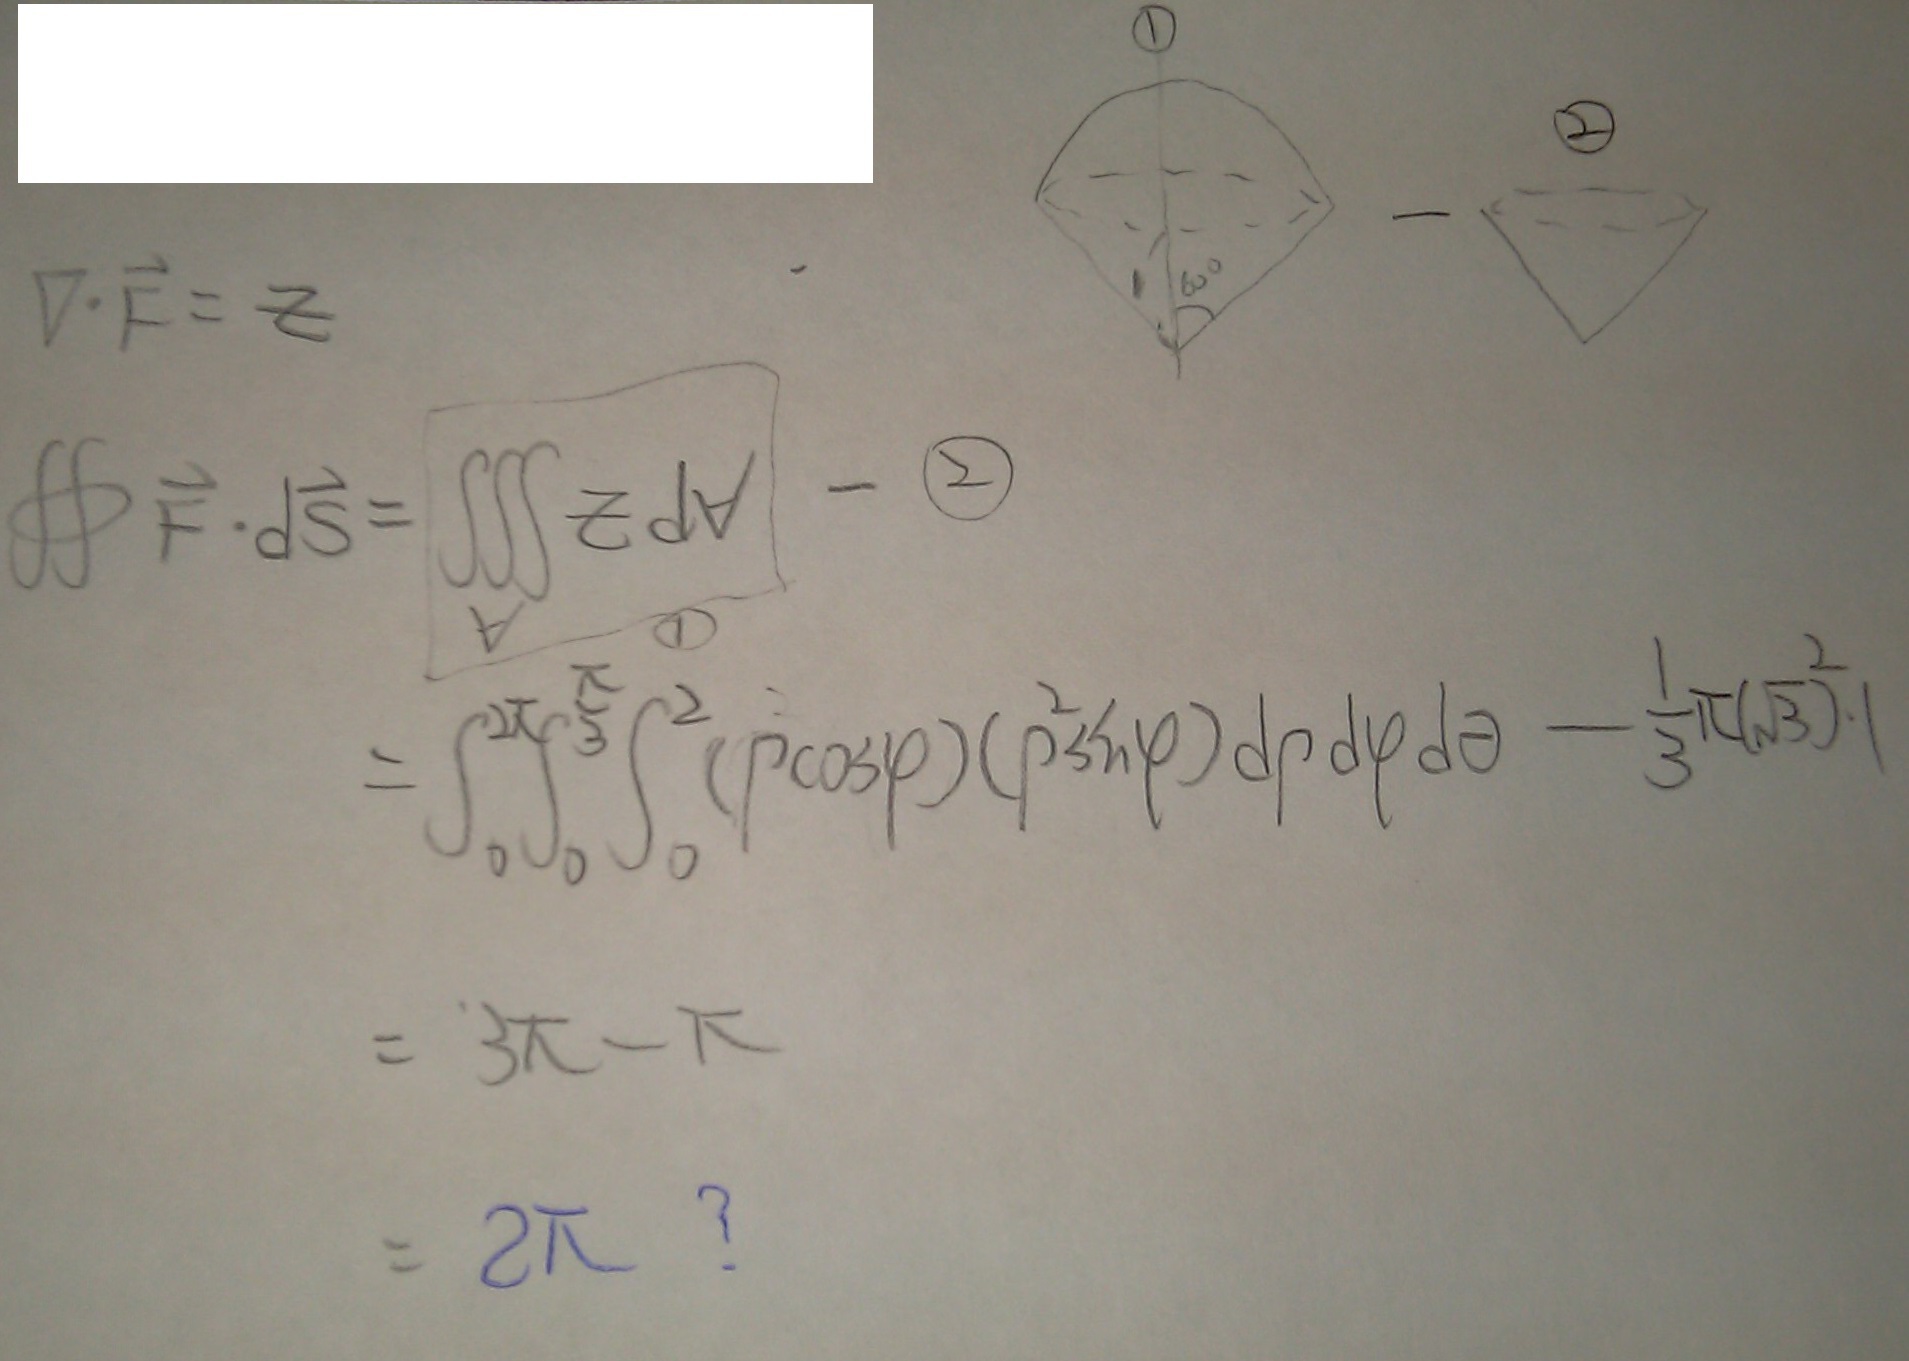 ①
②
1 60°
−
∇·F⃗ = z
∯ F⃗·dS⃗ = ∭_V z dV − ②
①
= ∫₀^{2π} ∫₀^{π/3} ∫₀² (ρcosφ)(ρ²sinφ) dρ dφ dθ − 1/3 π(√3)²·1
= 3π − π
= 2π ?